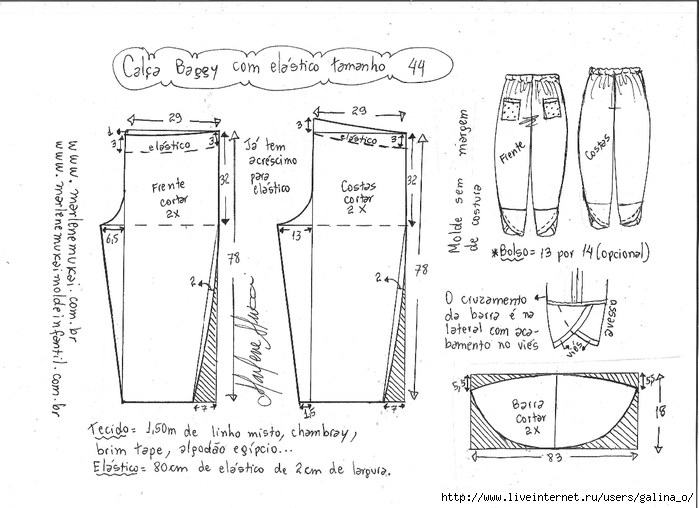 Calça Baggy com elástico tamanho 44
29
1
3
3
elástico
Frente
cortar
2x
32
6,5
78
2
7
Já tem
acréscimo
para
elástico
29
3
3
elástico
Costas
cortar
2x
32
13
78
2
7
1,5
Marlene Mukai
www.marlenemukai.com.br
www.marlenemukaimoldeinfantil.com.br
Molde sem margem
de costura
Frente
Costas
*Bolso= 13 por 14 (opcional)
O cruzamento
da barra é na
lateral com aca-
bamento no viés
viés
Barra
cortar
2x
5,5
5,5
18
83
Tecido= 1,50m de linho misto, chambray,
brim tape, algodão egípcio...
Elástico= 80cm de elástico de 2cm de largura.
http://www.liveinternet.ru/users/galina_o/